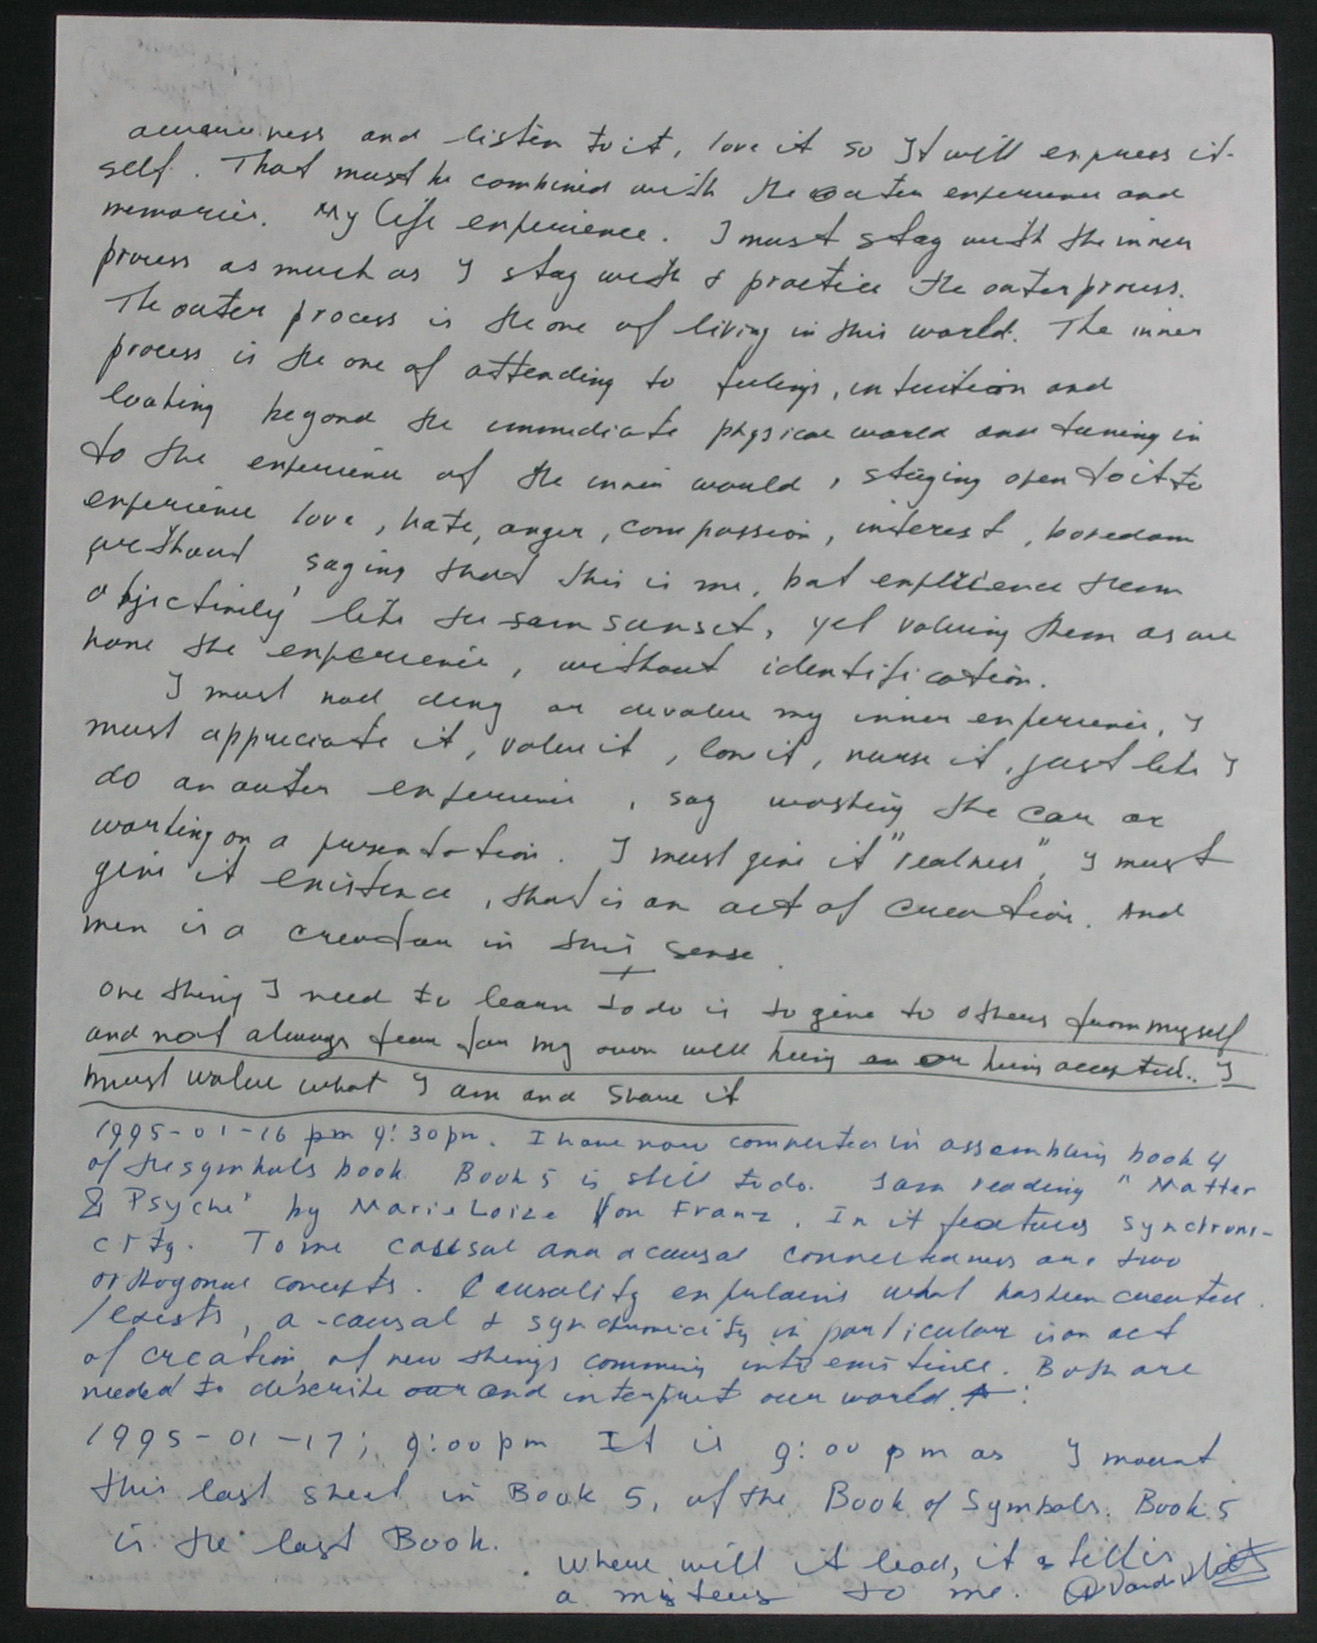 awareness and listen to it, love it so It will express it-
self. That must be combined with the outer experience and
memories. My life experience. I must stay with the inner
process as much as I stay with & practice the outer process.
The outer process is the one of living in this world. The inner
process is the one of attending to feelings, intuition and
looking beyond the immediate physical world and tuning in
to the experience of the inner world, staying open to it to
experience love, hate, anger, compassion, interest, boredom
without saying that this is me, but experience them
objectively like the sunset, yet valuing them as we
have the experience, without identification.
I must not deny or devalue my inner experience, I
must appreciate it, value it, love it, nurse it, just like I
do an outer experience, say washing the car or
working on a presentation. I must give it "realness", I must
give it existence, that is an act of creation. And
men is a creator in this sense.
One thing I need to learn to do is to give to others from myself
and not always fear for my own well being or being accepted. I
must value what I am and share it
1995-01-16 pm 9:30pm. I have now completed in assembling book 4
of the symbols book. Book 5 is still to do. I am reading "Matter
& Psyche" by Marie Loize Von Franz. In it features synchroni-
city. To me causal and acausal connectedness are two
orthogonal concepts. Causality explains what has been created
/exists, a-causal & synchronicity in particular is an act
of creation, of new things comming into existence. Both are
needed to describe and interpret our world.
1995-01-17; 9:00pm It is 9:00 pm as I mount
this last sheet in Book 5, of the Book of Symbols. Book 5
is the last Book.
Where will it lead, it still is
a mistery to me.